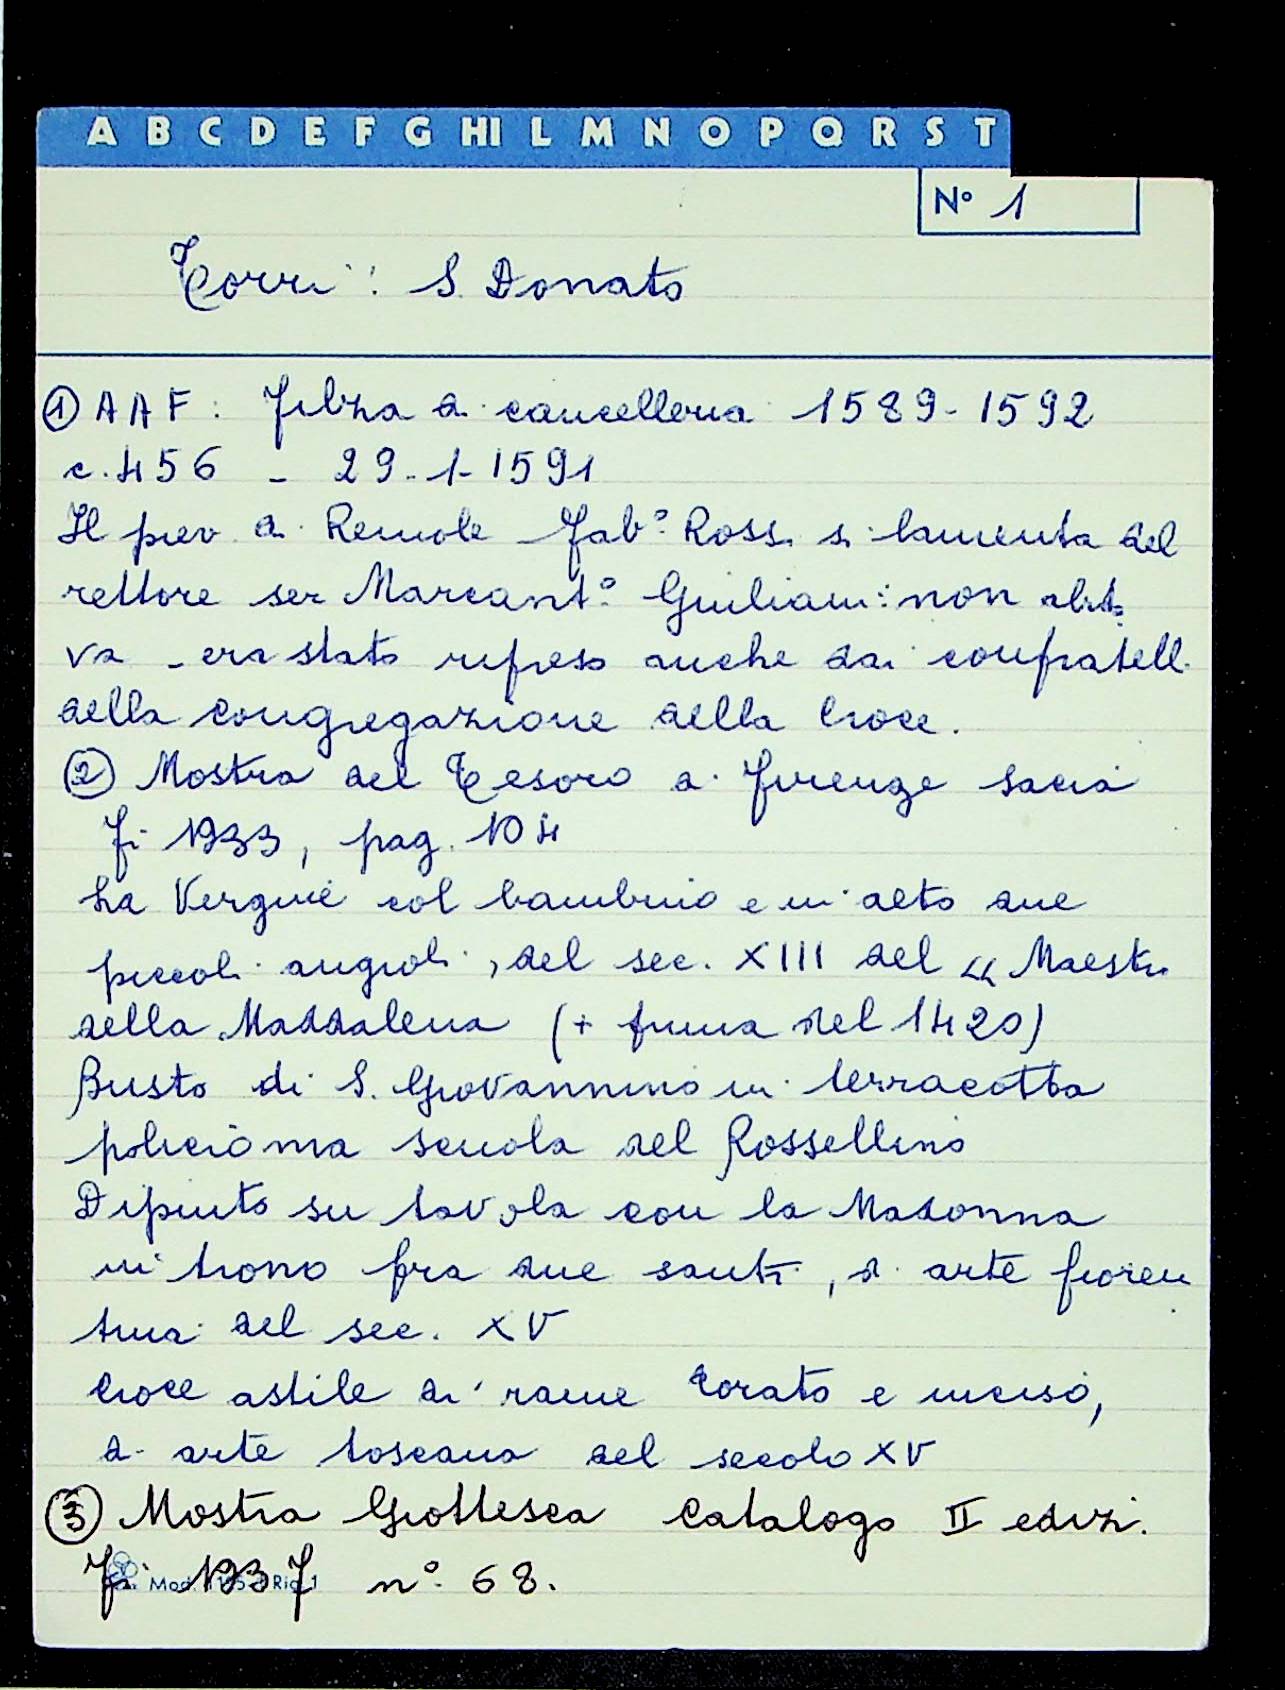 A B C D E F G HI L M N O P Q R S T
N° 1
Torri: S. Donato
① A A F: Filza di cancelleria 1589-1592
c. 456 - 29-1-1591
Il piev di Remole Fab° Rossi si lamenta del
rettore ser Marcant° Giuliani: non abita
va - era stato ripreso anche dai confratelli
della congregazione della Croce.
② Mostra del Tesoro di Firenze Sacra
Fi 1933, pag. 104
La Vergine col bambino e in alto due
piccoli angioli, del sec. XIII del "Maestro
della Maddalena (+ prima del 1420)
Busto di S. Giovannino in terracotta
policroma scuola del Rossellino
Dipinto su tavola con la Madonna
in trono fra due santi, di arte fioren
tina del sec. XV
Croce astile di rame dorato e inciso,
di arte toscana del secolo XV
③ Mostra Giottesca Catalogo II ediz.
Fi 1937 n° 68.